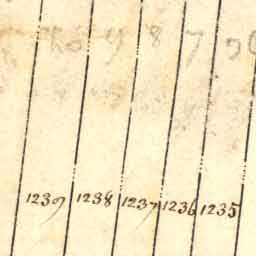 9 8 7
1239 1238 1237 1236 1235